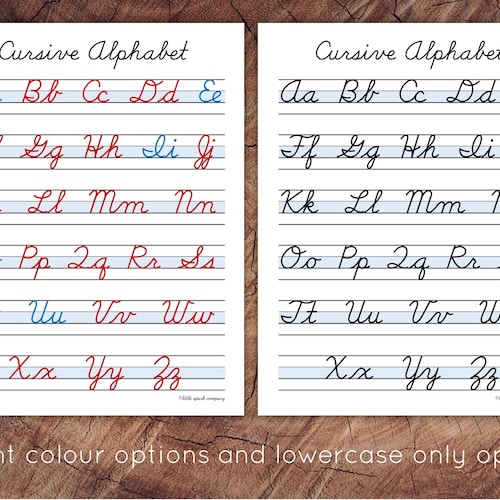 Cursive Alphabet
Bb Cc Dd Ee
Gg Hh Ii Jj
Ll Mm Nn
Pp Qq Rr Ss
Uu Vv Ww
Xx Yy Zz
©little spark company
Cursive Alphabet
Aa Bb Cc Dd
Ff Gg Hh Ii
Kk Ll Mm
Oo Pp Qq Rr
Tt Uu Vv
Xx Yy Zz
colour options and lowercase only